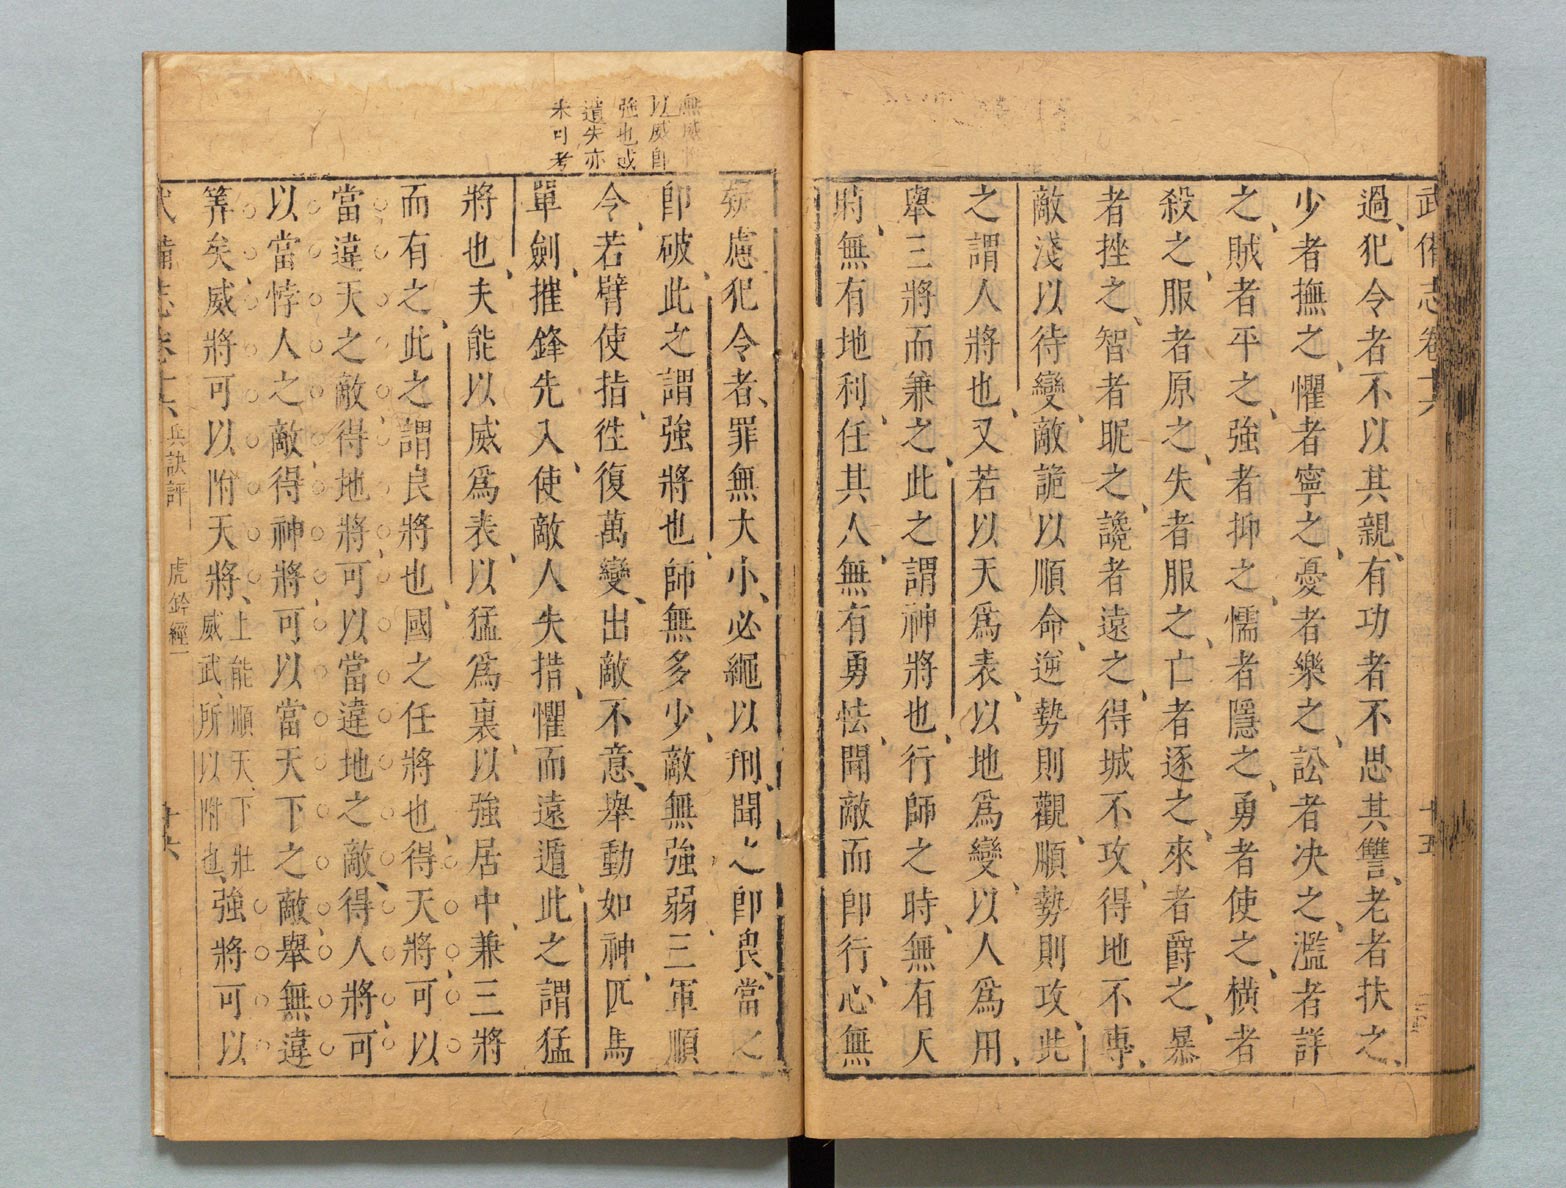 武備志卷十六
十五
過、犯令者不以其親、有功者不思其讐、老者扶之、
少者撫之、懼者寧之、憂者樂之、訟者决之、濫者詳
之、賊者平之、強者抑之、懦者隱之、勇者使之、橫者
殺之、服者原之、失者服之、亡者逐之、來者爵之、暴
者挫之、智者昵之、讒者遠之、得城不攻、得地不專、
敵淺以待變、敵詭以順命、逆勢則觀、順勢則攻、此
之謂人將也、又若以天爲表、以地爲變、以人爲用、
舉三將而兼之、此之謂神將也、行師之時、無有天
時、無有地利、任其人、無有勇怯、聞敵而卽行、心無
無威
以威卽
強也或
遺失亦
未可考
疑慮犯令者、罪無大小、必繩以刑、聞之卽畏、當之
卽破、此之謂強將也、師無多少、敵無強弱、三軍順
令、若臂使指、徃復萬變、出敵不意、舉動如神、匹馬
單劍、摧鋒先入、使敵人失措、懼而遠遁、此之謂猛
將也、夫能以威爲表、以猛爲裏、以強居中、兼三將
而有之、此之謂良將也、國之任將也、得天將、可以
當違天之敵、得地將、可以當違地之敵、得人將、可
以當悖人之敵、得神將、可以當天下之敵、舉無違
筭矣、威將可以附天將、上能順天、下壯威武、所以附也、強將可以
武備志卷十六 兵訣評 虎鈐經一 十六